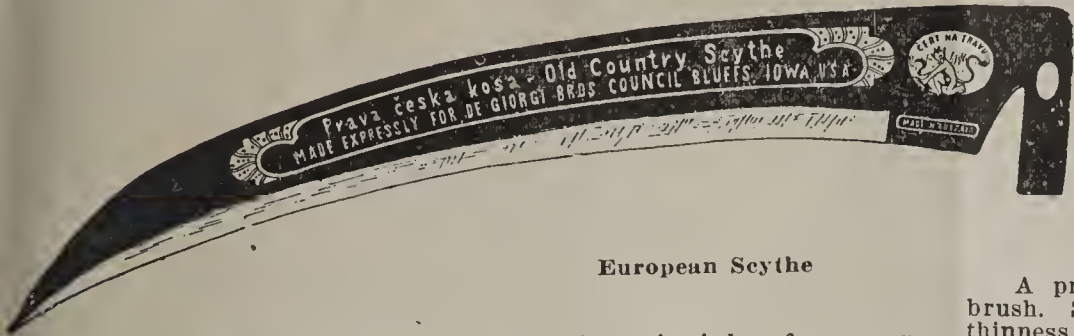 Prava česka kosa - Old Country Scythe
MADE EXPRESSLY FOR DE GIORGI BROS COUNCIL BLUFFS, IOWA, USA
ČERT NA TRAVU
MADE IN
European Scythe
A pr
brush. S
thinness